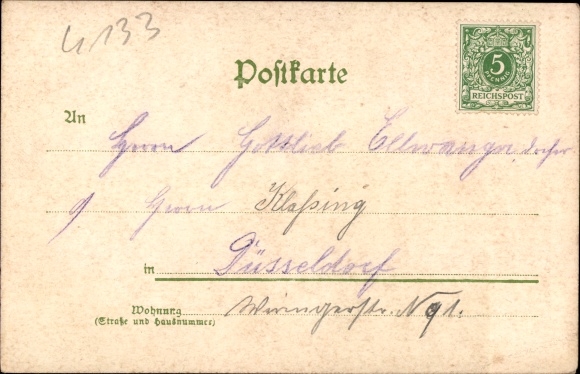 4133
Postkarte
5
PFENNIG
REICHSPOST
An
Herrn Gottlieb Ellwanger,
Herrn Klaßing
in Düsseldorf
Wohnung
(Straße und Hausnummer)